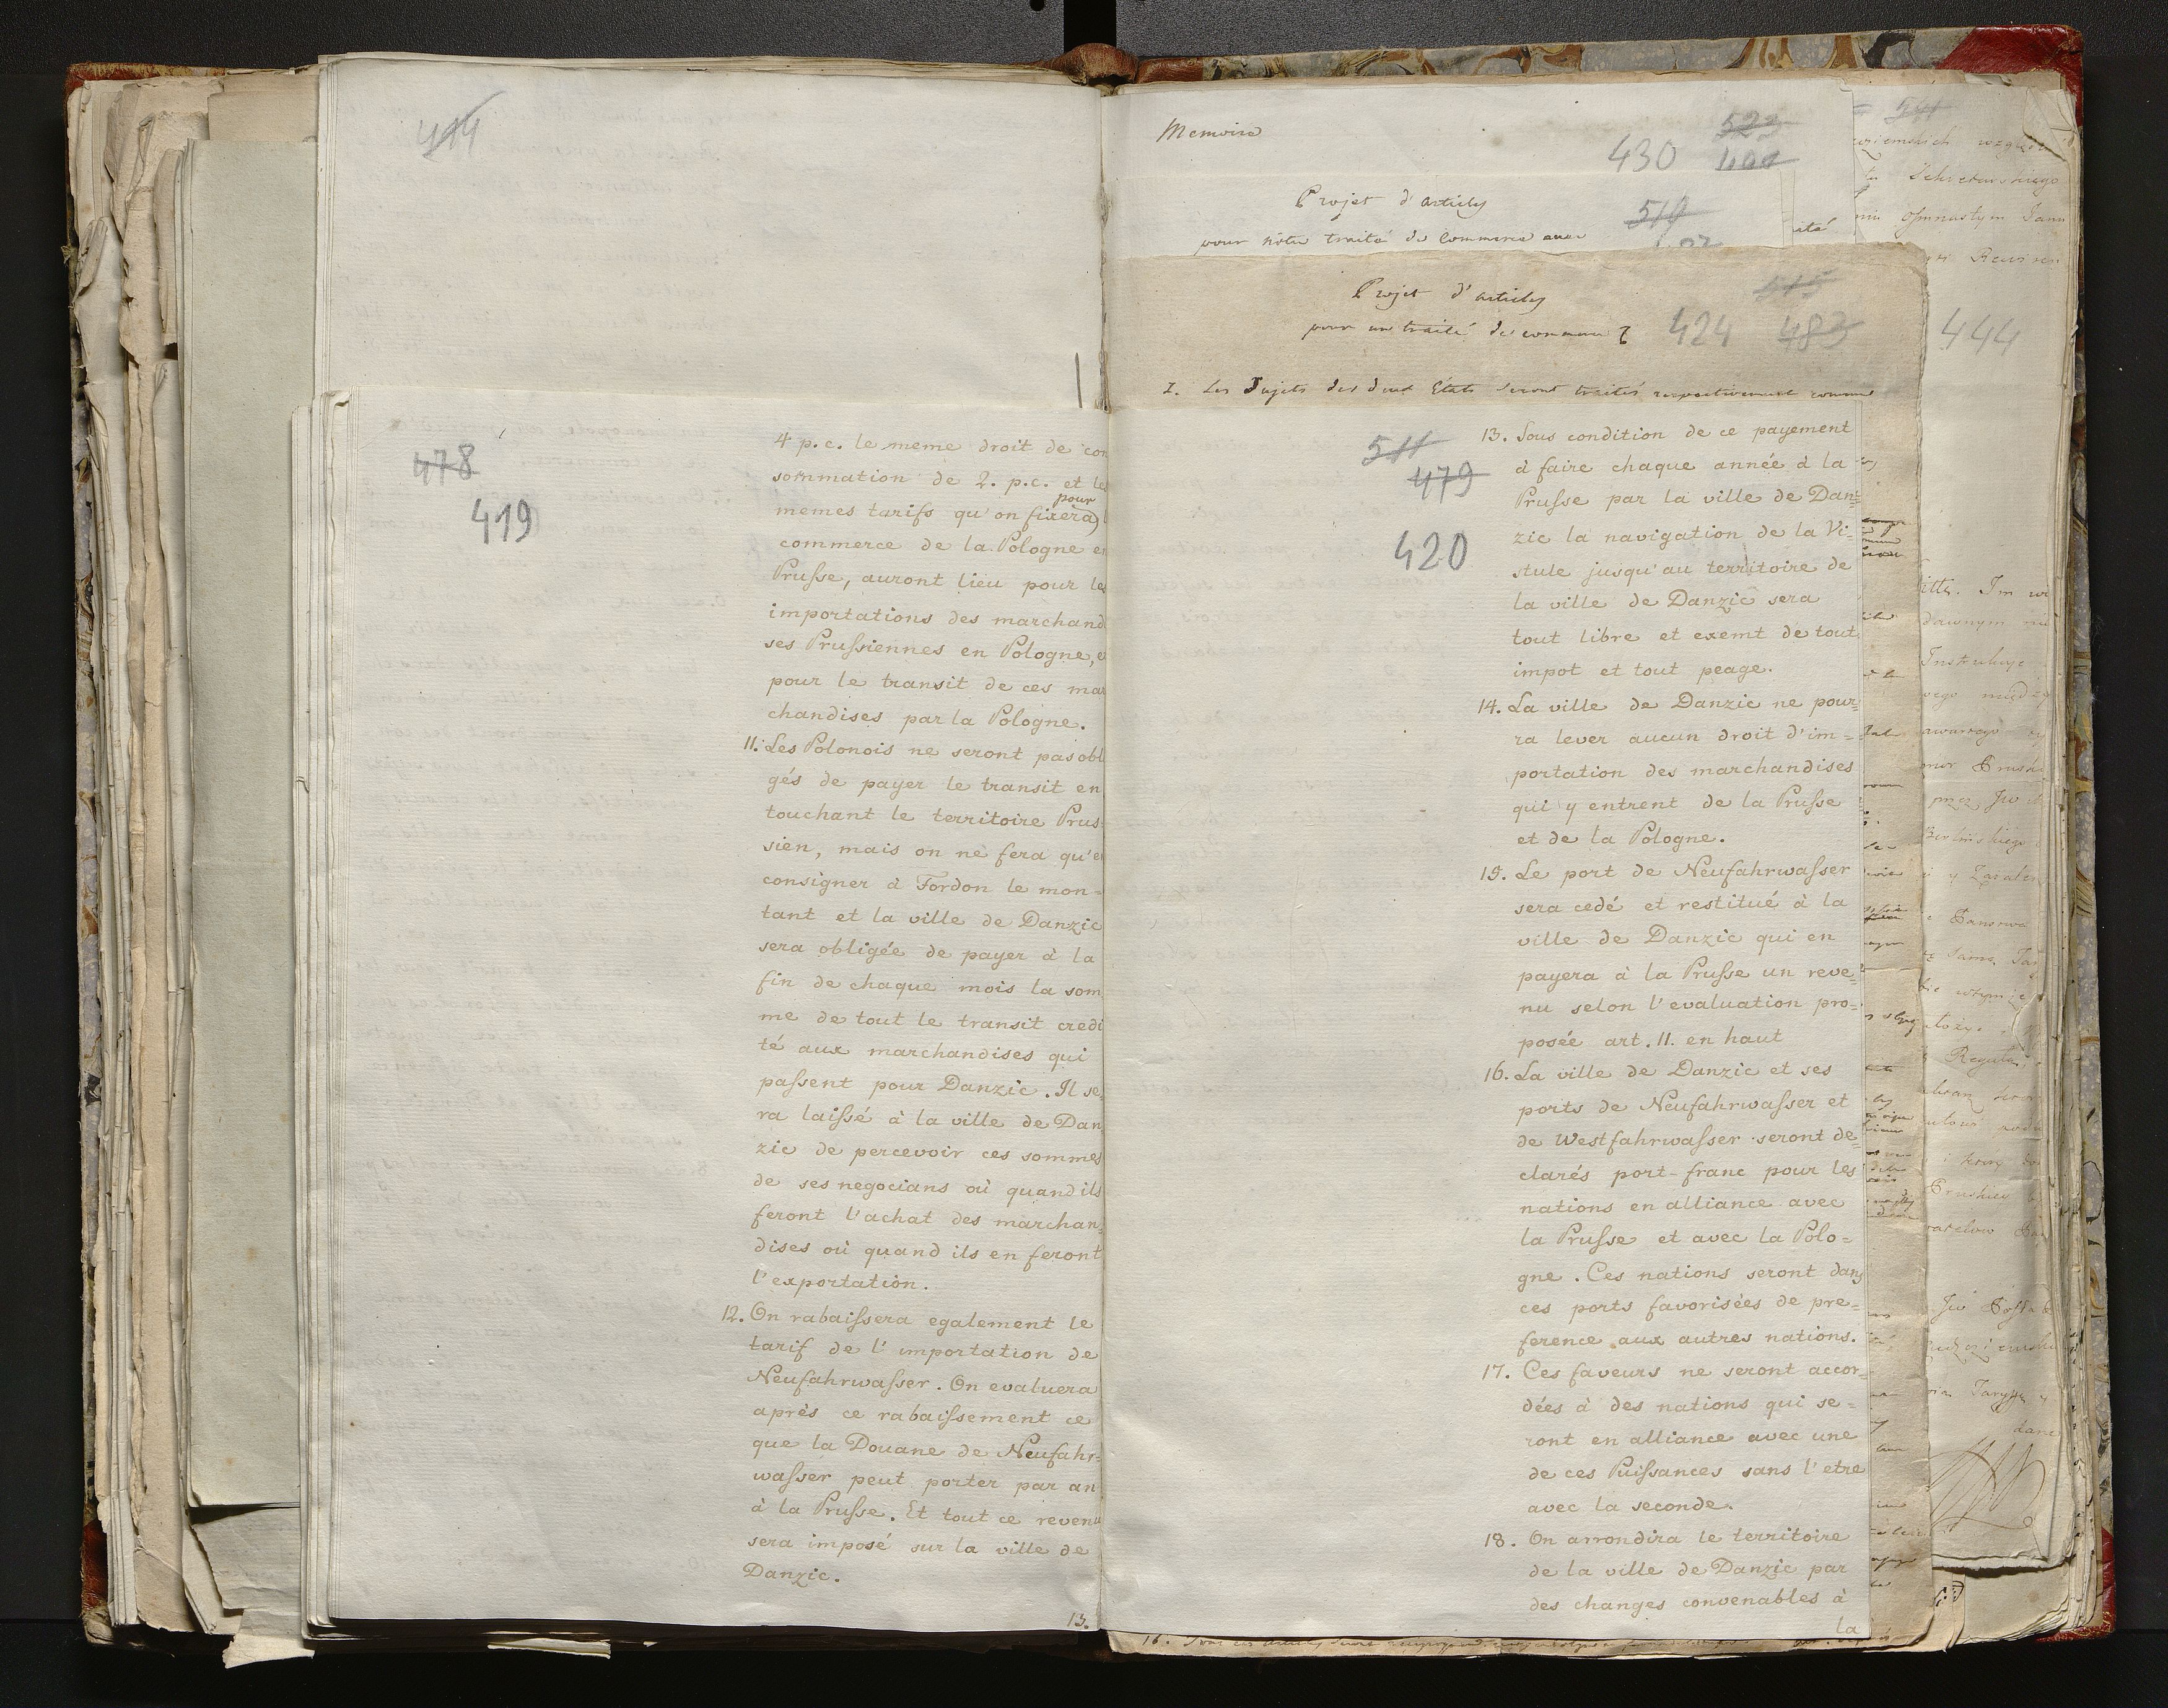 414
478
419
4 p.c. le meme droit de con
sommation de 2. p.c. et les
pour
memes tarifs qu'on fixera)
commerce de la Pologne en
Prusse, auront lieu pour les
importations des marchandi
ses Prussiennes en Pologne, et
pour le transit de ces mar
chandises par la Pologne.
11. Les Polonois ne seront pas obli
gés de payer le transit en
touchant le territoire Prus-
sien, mais on ne fera qu'en
consigner à Fordon le mon-
tant et la ville de Danzic
sera obligée de payer à la
fin de chaque mois la som
me de tout le transit credi
té aux marchandises qui
passent pour Danzic. Il se
ra laissé à la ville de Dan
zic de percevoir ces sommes
de ses negocians où quand ils
feront l'achat des marchan=
dises où quand ils en feront
l'exportation.
12. On rabaissera egalement le
tarif de l'importation de
Neufahrwasser. On evaluera
après ce rabaissement ce
que la Douane de Neufahr=
wasser peut porter par an
à la Prusse. Et tout ce revenu
sera imposé sur la ville de
Danzic.
13.
Memoire
523
430
Projet d'articles
pour notre traité de Commerce avec
519
Projet d'articles
pour un traité de commerce
515
424 483
1. Les Sujets des deux Etats seront traités respectivement comme
511
479
420
13. Sous condition de ce payement
à faire chaque année à la
Prusse par la ville de Dan=
zic la navigation de la Vi=
stule jusqu'au territoire de
la ville de Danzic sera
tout libre et exemt de tout
impot et tout peage.
14. La ville de Danzic ne pour=
ra lever aucun droit d'im=
portation des marchandises
qui y entrent de la Prusse
et de la Pologne.
15. Le port de Neufahrwasser
sera cedé et restitué à la
ville de Danzic qui en
payera à la Prusse un reve=
nu selon l'evaluation pro=
posée art. 11. en haut
16. La ville de Danzic et ses
ports de Neufahrwasser et
de Westfahrwasser seront de=
clarés port-franc pour les
nations en alliance avec
la Prusse et avec la Polo=
gne. Ces nations seront dans
ces ports favorisées de pre=
ference aux autres nations.
17. Ces faveurs ne seront accor=
dées à des nations qui se=
ront en alliance avec une
de ces Puissances sans l'etre
avec la seconde.
18. On arrondira le territoire
de la ville de Danzic par
des changes convenables à
la
541
444